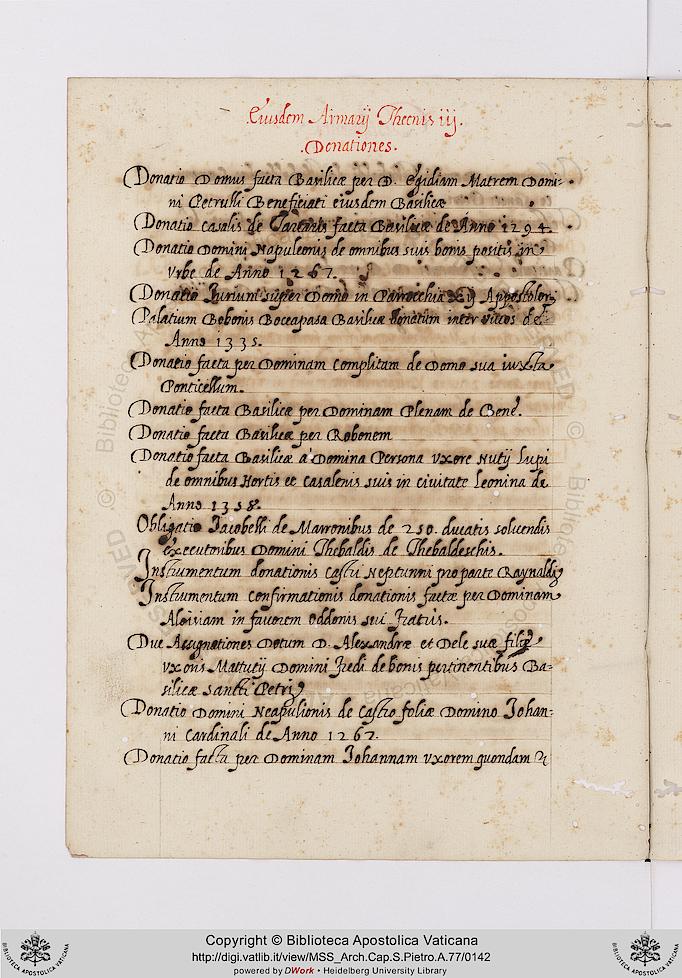 .Eiusdem Armarij Thecnis iij.
.Donationes.
Donatio Domus facta Basilicæ per D. Egidiam Matrem Domi-
ni Petrulli Beneficiati eiusdem Basilicæ
Donatio casalis de facta Basilicæ de Anno 1294.
Donatio Domini Napuleonis de omnibus suis bonis positis in
Vrbe de Anno 1267.
Donatio Iurium super Domo in Parrochia xij Appostolorum
Palatium Bobonis Boccapasa Basilicæ donatum inter vicos de
Anno 1335.
Donatio facta per Dominam Complitam de Domo sua iuxta
Ponticellum.
Donatio facta Basilicæ per Dominam Plenam de Bene.
Donatio facta Basilicæ per Robonem
Donatio facta Basilicæ a Domina Persona vxore Nutij Lupi
de omnibus Hortis et Casalenis suis in ciuitate Leonina de
Anno 1358.
Obligatio Iacobelli de Marronibus de 250. ducatis soluendis
executoribus Domini Thebaldis de Thebaldeschis.
Instrumentum donationis Castri Neptunni pro parte Raynaldi
Instrumentum Confirmationis donationis factæ per Dominam
Aloisiam in fauorem Oddonis sui fratris.
Due Assignationes Dotum D. Alexandræ et Dele suæ filiæ
vxoris Mattucij Domini de bonis pertinentibus Ba-
silicæ Sancti Petri
Donatio Domini Neapulionis de Castro foliæ Domino Iohan-
ni Cardinali de Anno 1267.
Donatio facta per Dominam Iohannam vxorem quondam
Copyright © Biblioteca Apostolica Vaticana
http://digi.vatlib.it/view/MSS_Arch.Cap.S.Pietro.A.77/0142
powered by DWork • Heidelberg University Library